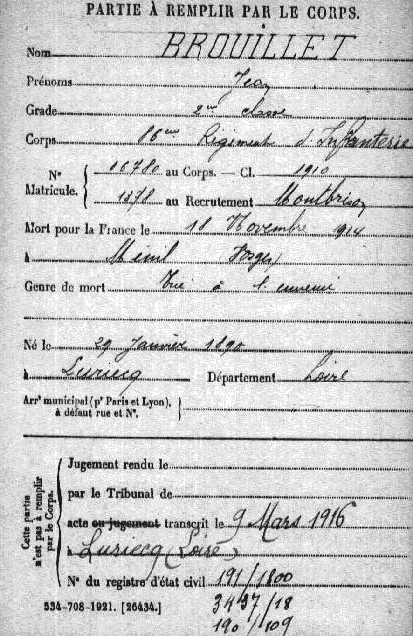 PARTIE À REMPLIR PAR LE CORPS.
Nom BROUILLET
Prénoms Jean
Grade 2me classe
Corps 86eme Régiment d'Infanterie
N° Matricule. { 16780 au Corps. — Cl. 1910
1378 au Recrutement Montbrison
Mort pour la France le 18 Novembre 1914
à Ménil Vosges
Genre de mort Tué à l'ennemi
Né le 29 Janvier 1890
à Luriecq Département Loire
Arrt municipal (pr Paris et Lyon), à défaut rue et N°. }
Cette partie n'est pas à remplir par le Corps. {
Jugement rendu le
par le Tribunal de
acte ou jugement transcrit le 9 Mars 1916
à Luriecq (Loire)
N° du registre d'état civil 191/1800
534-708-1921. [26434.] 3437/18
190/109